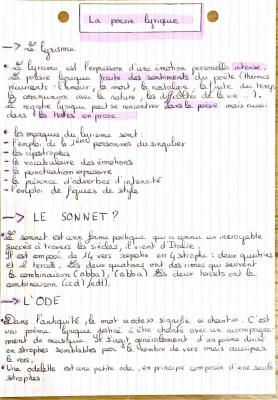 La poésie lyrique
→ Le lyrisme
• Le lyrisme est l'expression d'une émotion personnelle intense.
La poésie lyrique traite des sentiments du poète (thèmes
récurrents : l'amour, la mort, la nostalgie, la fuite du temps,
la communion avec la nature, les difficultés de la vie ...).
Le registre lyrique peut se rencontrer dans la poésie mais aussi
dans les textes en prose.
• les marques du lyrisme sont :
- l'emploi de la 1ère personne du singulier
- les apostrophes
- le vocabulaire des émotions
- la ponctuation expressive
- la présence d'adverbes d'intensité
- l'emploi de figures de style
→ LE SONNET ?
• Le sonnet est une forme poétique qui a connu un incroyable
succès à travers les siècles, il vient d'Italie.
Il est composé de 14 vers répartis en 4 strophes : deux quatrains
et 2 tercets. Les deux quatrains ont des rimes qui suivent
la combinaison (abba), (abba). Les deux tercets ont la
combinaison (ccd) (edd).
→ L'ODE
• Dans l'antiquité, le mot «ode» signifie «chant». C'est
un poème lyrique destiné à être chanté avec un accompagne-
ment de musique. Il s'agit généralement d'un poème divisé
en strophes semblables par le nombre de vers mais aussi par
le vers.
• Une odelette est une petite ode, en principe composée d'une seule
strophe.